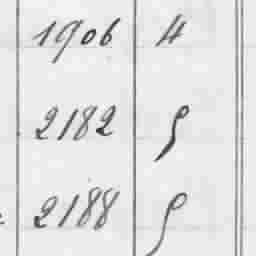 1906 4
2182 9
2188 9